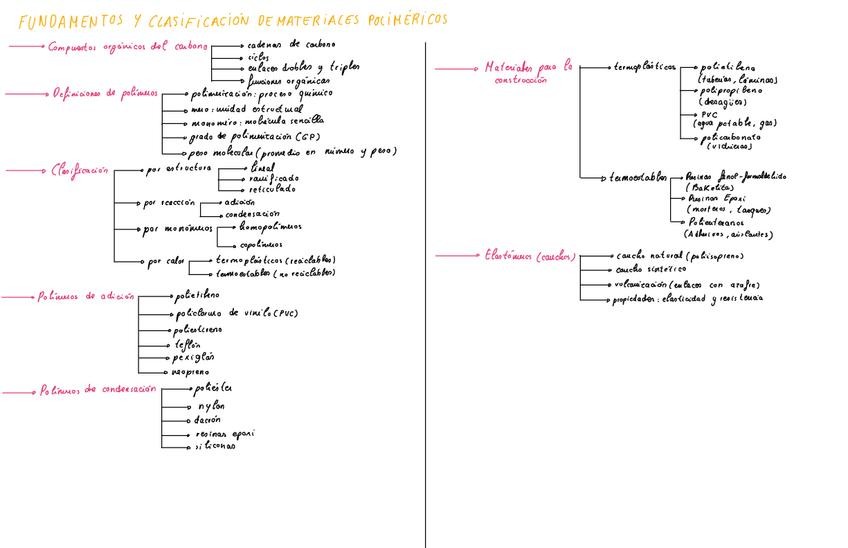 FUNDAMENTOS Y CLASIFICACIÓN DE MATERIALES POLIMÉRICOS
Compuestos orgánicos del carbono
cadenas de carbono
ciclos
enlaces dobles y triples
funciones orgánicas
Definiciones de polímeros
polimerización: proceso químico
mero: unidad estructural
monómero: molécula sencilla
grado de polimerización (GP)
peso molecular (promedio en número y peso)
Clasificación
por estructura
lineal
ramificado
reticulado
por reacción
adición
condensación
por monómeros
homopolímeros
copolímeros
por calor
termoplásticos (reciclables)
termoestables (no reciclables)
Polímeros de adición
polietileno
policloruro de vinilo (PVC)
poliestireno
teflón
plexiglán
neopreno
Polímeros de condensación
poliéster
nylon
dacrón
resinas epoxi
siliconas
Materiales para la
construcción
termoplásticos
polietileno
(tuberías, láminas)
polipropileno
(desagües)
PVC
(agua potable, gas)
policarbonato
(vidrieras)
termoestables
Resinas fenol-formaldehído
(Bakelita)
Resinas Epoxi
(morteros, tanques)
Poliuretanos
(Adhesivos, aislantes)
Elastómeros (cauchos)
caucho natural (poliisopreno)
caucho sintético
vulcanización (enlaces con azufre)
propiedades: elasticidad y resistencia